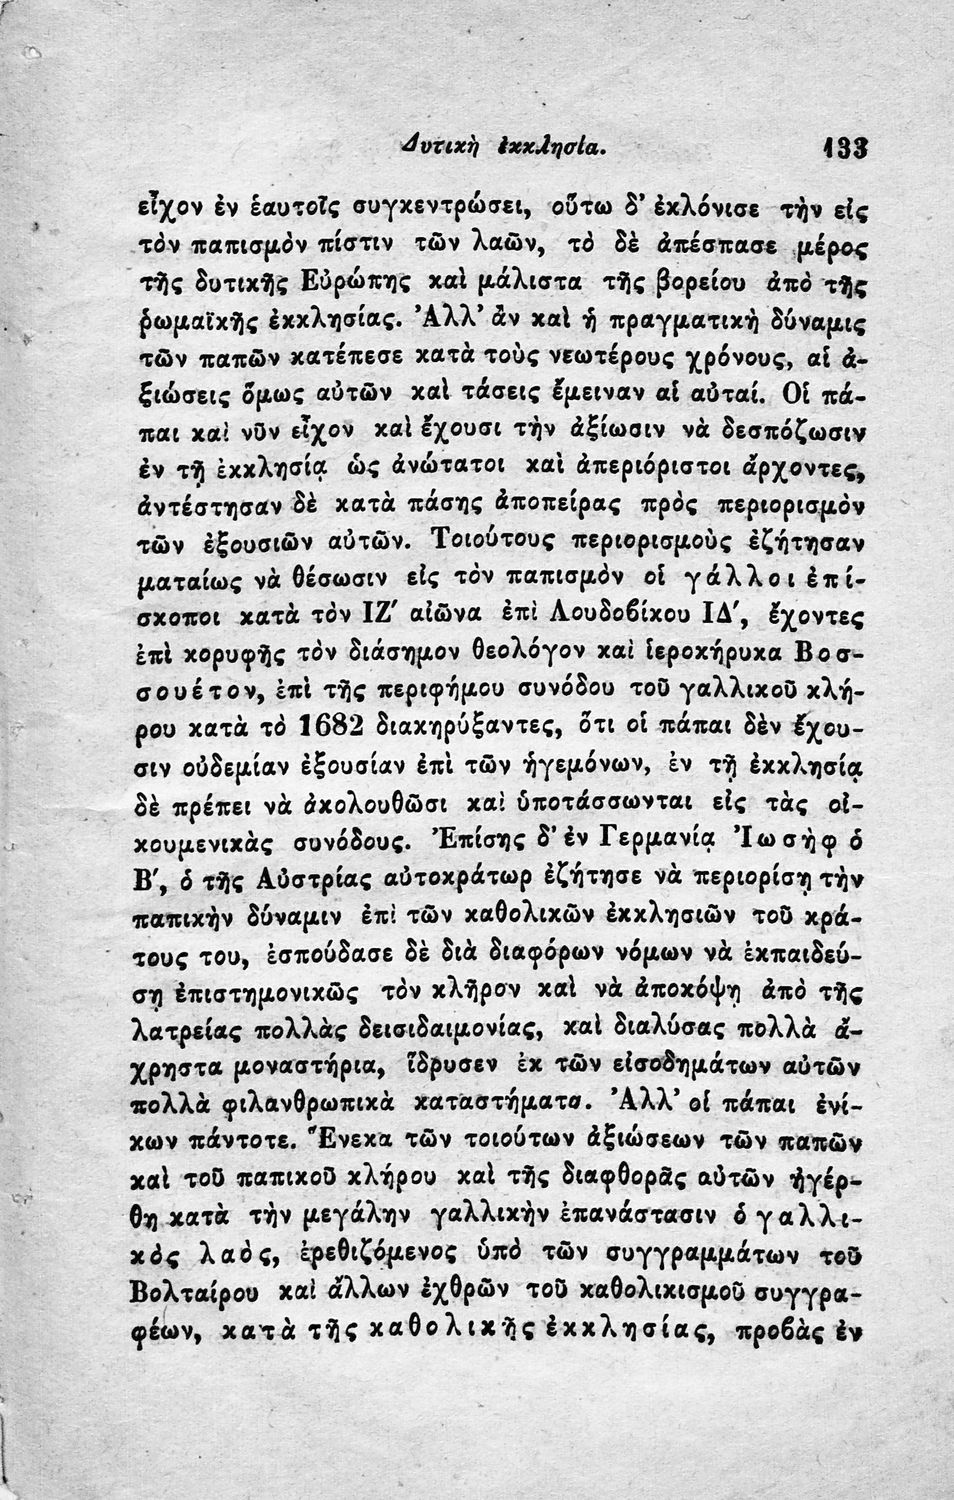 Δυτικὴ ἐκκλησία. 133
εἶχον ἐν ἑαυτοῖς συγκεντρώσει, οὕτω δ' ἐκλόνισε τὴν εἰς
τὸν παπισμὸν πίστιν τῶν λαῶν, τὸ δὲ ἀπέσπασε μέρος
τῆς δυτικῆς Εὐρώπης καὶ μάλιστα τῆς βορείου ἀπὸ τῆς
ῥωμαϊκῆς ἐκκλησίας. Ἀλλ' ἂν καὶ ἡ πραγματικὴ δύναμις
τῶν παπῶν κατέπεσε κατὰ τοὺς νεωτέρους χρόνους, αἱ ἀ-
ξιώσεις ὅμως αὐτῶν καὶ τάσεις ἔμειναν αἱ αὐταί. Οἱ πά-
παι καὶ νῦν εἶχον καὶ ἔχουσι τὴν ἀξίωσιν νὰ δεσπόζωσιν
ἐν τῇ ἐκκλησίᾳ ὡς ἀνώτατοι καὶ ἀπεριόριστοι ἄρχοντες,
ἀντέστησαν δὲ κατὰ πάσης ἀποπείρας πρὸς περιορισμὸν
τῶν ἐξουσιῶν αὐτῶν. Τοιούτους περιορισμοὺς ἐζήτησαν
ματαίως νὰ θέσωσιν εἰς τὸν παπισμὸν οἱ γάλλοι ἐπί-
σκοποι κατὰ τὸν ΙΖ' αἰῶνα ἐπὶ Λουδοβίκου ΙΔ', ἔχοντες
ἐπὶ κορυφῆς τὸν διάσημον θεολόγον καὶ ἱεροκήρυκα Βοσ-
σουέτον, ἐπὶ τῆς περιφήμου συνόδου τοῦ γαλλικοῦ κλή-
ρου κατὰ τὸ 1682 διακηρύξαντες, ὅτι οἱ πάπαι δὲν ἔχου-
σιν οὐδεμίαν ἐξουσίαν ἐπὶ τῶν ἡγεμόνων, ἐν τῇ ἐκκλησίᾳ
δὲ πρέπει νὰ ἀκολουθῶσι καὶ ὑποτάσσωνται εἰς τὰς οἰ-
κουμενικὰς συνόδους. Ἐπίσης δ' ἐν Γερμανίᾳ Ἰωσὴφ ὁ
Β', ὁ τῆς Αὐστρίας αὐτοκράτωρ ἐζήτησε νὰ περιορίσῃ τὴν
παπικὴν δύναμιν ἐπὶ τῶν καθολικῶν ἐκκλησιῶν τοῦ κρά-
τους του, ἐσπούδασε δὲ διὰ διαφόρων νόμων νὰ ἐκπαιδεύ-
σῃ ἐπιστημονικῶς τὸν κλῆρον καὶ νὰ ἀποκόψῃ ἀπὸ τῆς
λατρείας πολλὰς δεισιδαιμονίας, καὶ διαλύσας πολλὰ ἄ-
χρηστα μοναστήρια, ἵδρυσεν ἐκ τῶν εἰσοδημάτων αὐτῶν
πολλὰ φιλανθρωπικὰ καταστήματα. Ἀλλ' οἱ πάπαι ἐνί-
κων πάντοτε. Ἕνεκα τῶν τοιούτων ἀξιώσεων τῶν παπῶν
καὶ τοῦ παπικοῦ κλήρου καὶ τῆς διαφθορᾶς αὐτῶν ἠγέρ-
θη κατὰ τὴν μεγάλην γαλλικὴν ἐπανάστασιν ὁ γαλλι-
κὸς λαὸς, ἐρεθιζόμενος ὑπὸ τῶν συγγραμμάτων τοῦ
Βολταίρου καὶ ἄλλων ἐχθρῶν τοῦ καθολικισμοῦ συγγρα-
φέων, κατὰ τῆς καθολικῆς ἐκκλησίας, προβὰς ἐν